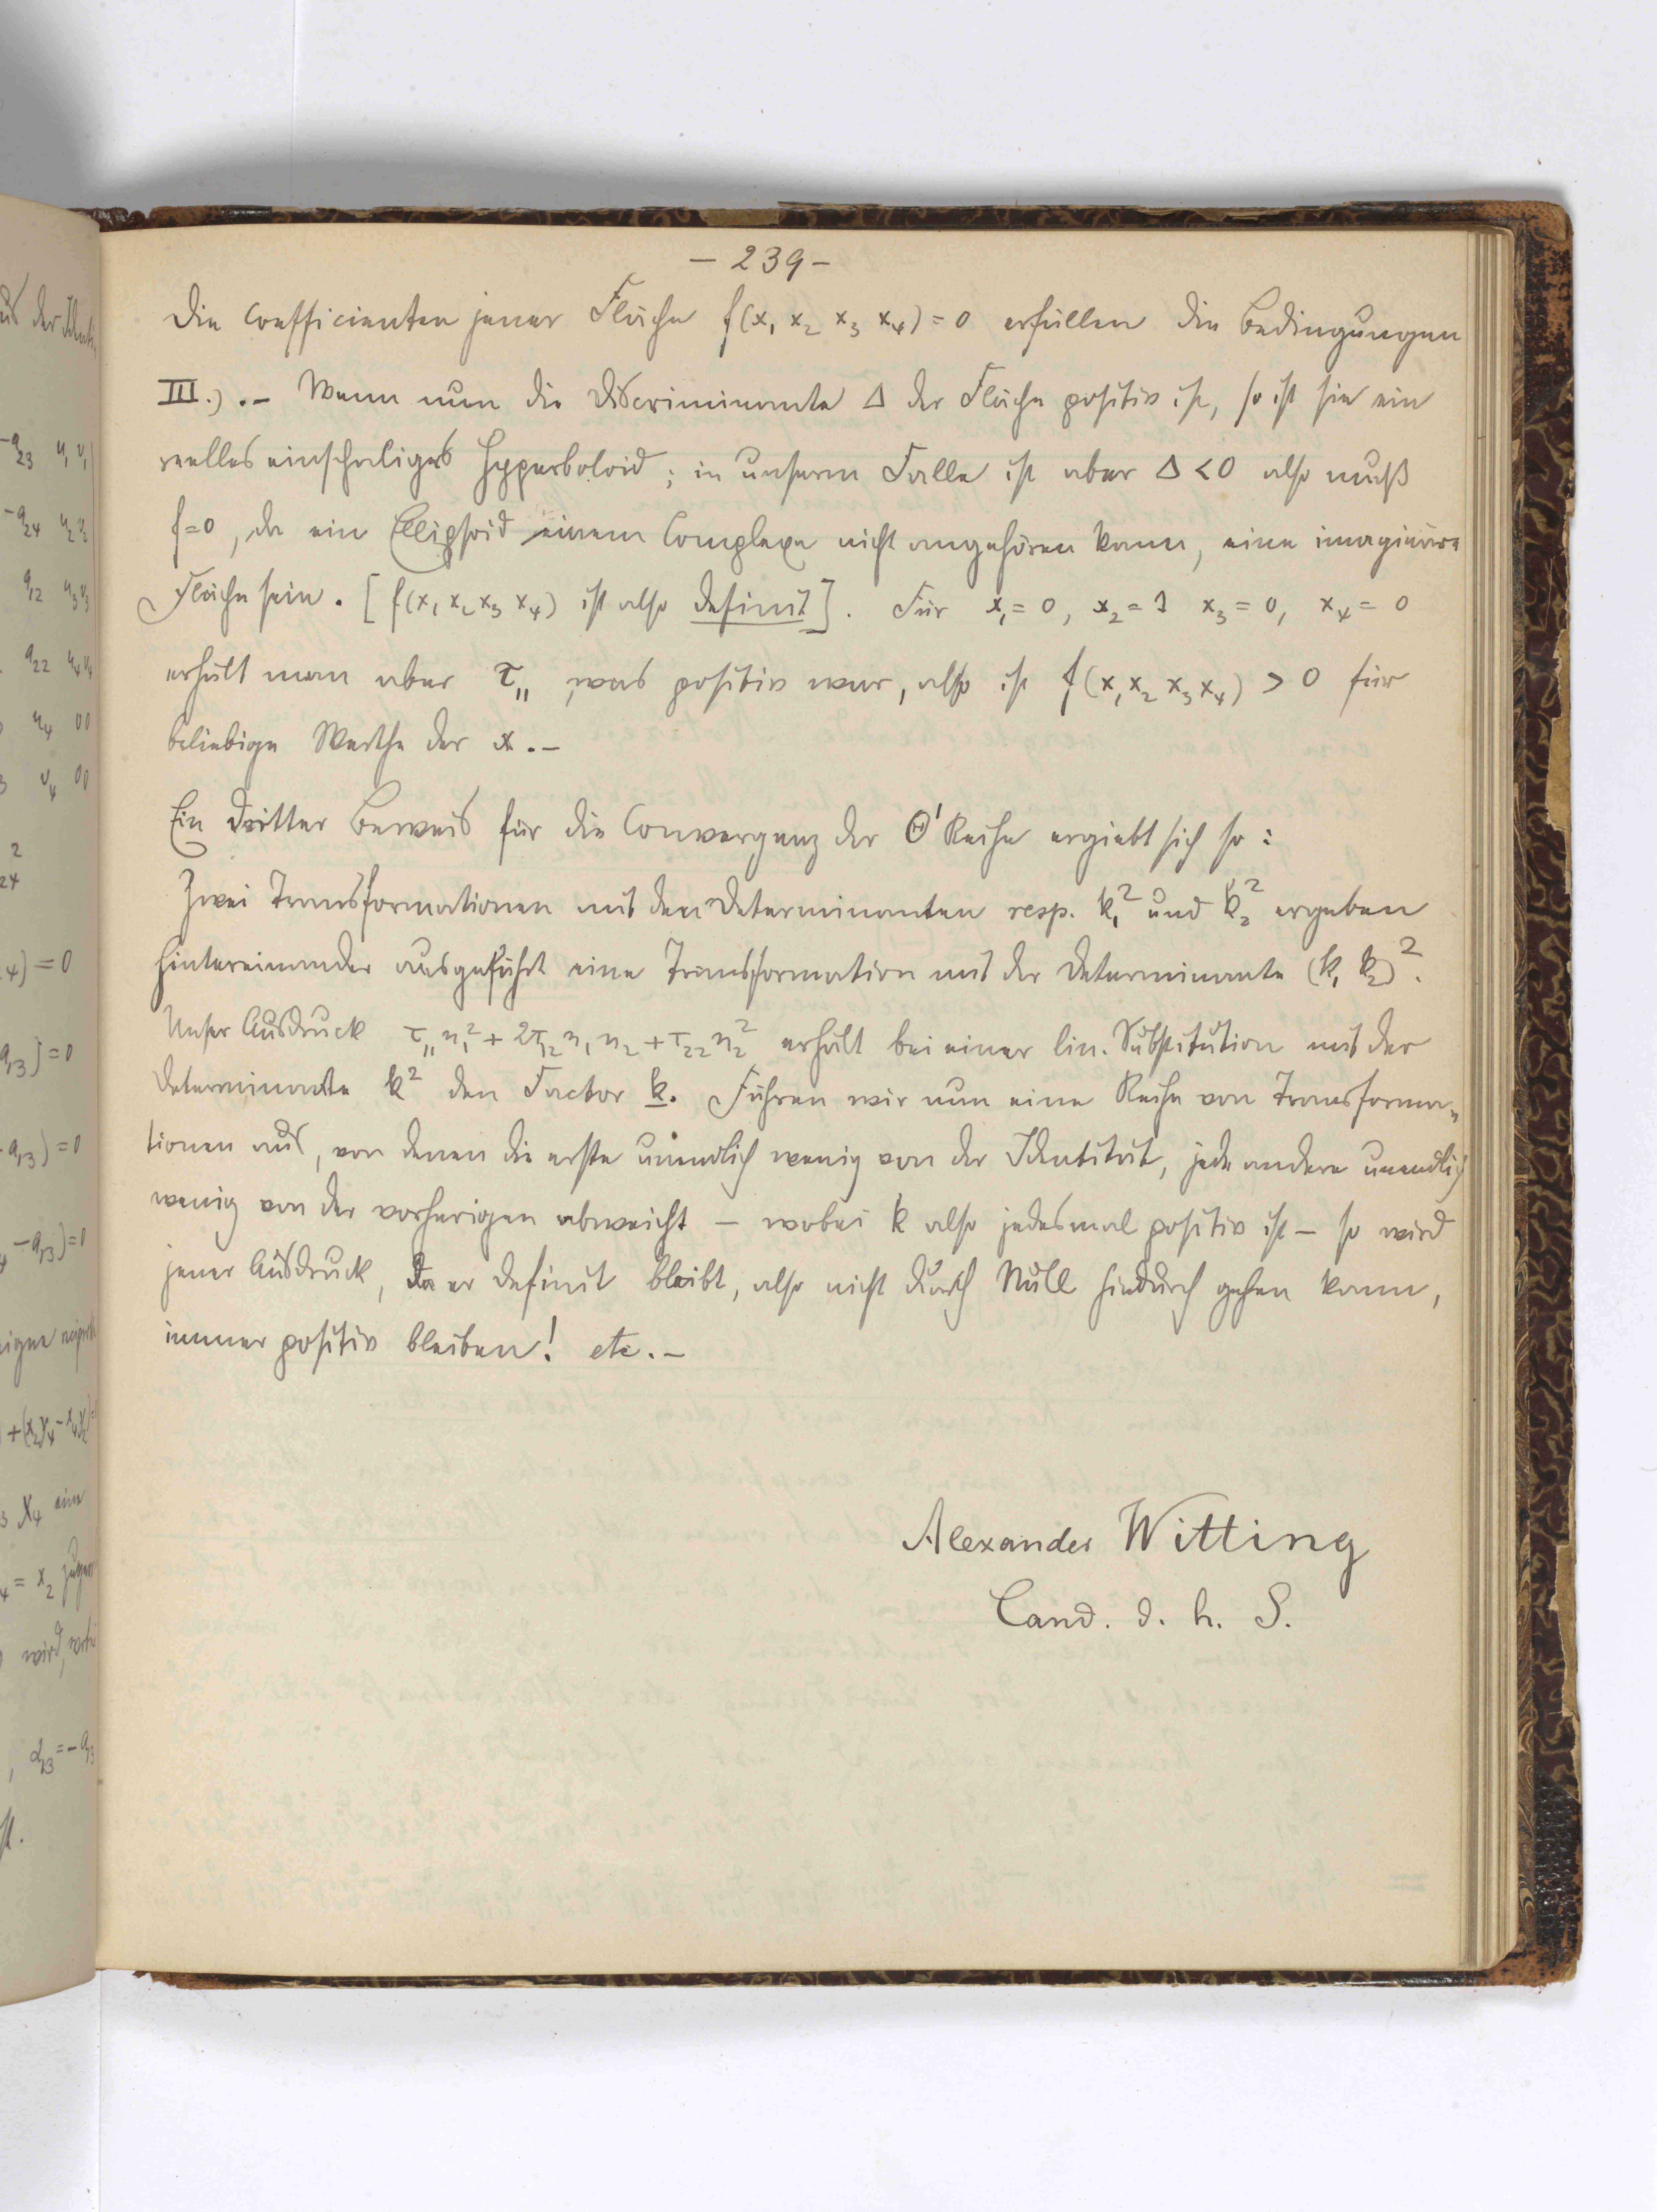 – 239 –
Die Coefficienten jener Fläche f(x₁ x₂ x₃ x₄) = 0 erfüllen die Bedingungen
III.) .– Wenn nun die Discriminante Δ der Fläche positiv ist, so ist sie ein
reelles einschaliges Hyperboloid; in unserm Falle ist aber Δ < 0 also muß
f=0, da ein Ellipsoid einem Complexe nicht angehören kann, eine imaginäre
Fläche sein. [f(x₁ x₂ x₃ x₄) ist also definit]. Für x₁ = 0, x₂ = 1 x₃ = 0, x₄ = 0
erhält man aber τ₁₁, was positiv war, also ist f(x₁ x₂ x₃ x₄) > 0 für
beliebige Werthe der x .–
Ein dritter Beweis für die Convergenz der Θ' Reihe ergiebt sich so:
Zwei Transformationen mit den Determinanten resp. k₁² und k₂² ergeben
hintereinander ausgeführt eine Transformation mit der Determinante (k₁ k₂)².
Unser Ausdruck τ₁₁n₁² + 2τ₁₂n₁n₂ + τ₂₂n₂² erhält bei einer lin. Substitution mit der
Determinante k² den Factor k. Führen wir nun eine Reihe von Transforma-
tionen aus, von denen die erste unendlich wenig von der Identität, jede andere unendlich
wenig von der vorherigen abweicht – wobei k also jedesmal positiv ist – so wird
jener Ausdruck, da er definit bleibt, also nicht durch Null hindurch gehen kann,
immer positiv bleiben! etc. –
Alexander Witting
Cand. d. h. S.